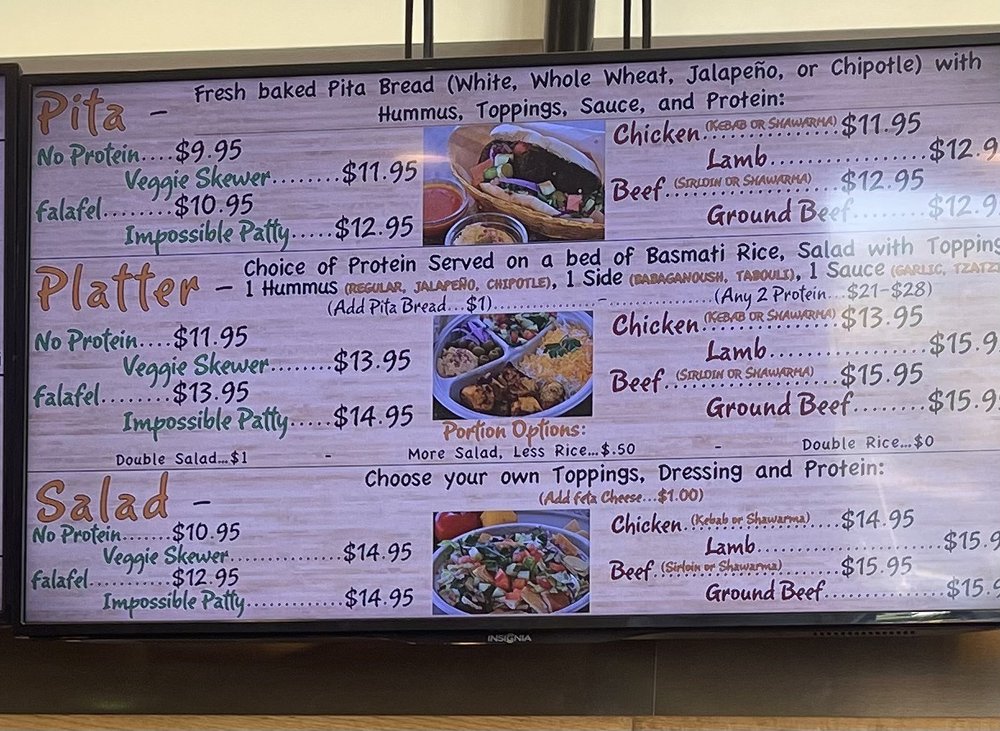 Pita - Fresh baked Pita Bread (White, Whole Wheat, Jalapeño, or Chipotle) with
Hummus, Toppings, Sauce, and Protein:
No Protein....$9.95
Veggie Skewer.......$11.95
Falafel........$10.95
Impossible Patty.....$12.95
Chicken (KEBAB OR SHAWARMA)$11.95
Lamb..................$12.9
Beef (SIRLOIN OR SHAWARMA)$12.95
Ground Beef........$12.9
Platter - Choice of Protein Served on a bed of Basmati Rice, Salad with Topping
1 Hummus (REGULAR, JALAPEÑO, CHIPOTLE), 1 Side (BABAGANOUSH, TABOULI), 1 Sauce (GARLIC, TZATZ
(Add Pita Bread...$1)..................-..................(Any 2 Protein...$21-$28)
No Protein....$11.95
Veggie Skewer.......$13.95
Falafel........$13.95
Impossible Patty.....$14.95
Chicken (KEBAB OR SHAWARMA)$13.95
Lamb..................$15.9
Beef (SIRLOIN OR SHAWARMA)$15.95
Ground Beef........$15.9
Portion Options:
Double Salad...$1 - More Salad, Less Rice...$.50 - Double Rice...$0
Salad - Choose your own Toppings, Dressing and Protein:
(Add feta Cheese...$1.00)
No Protein......$10.95
Veggie Skewer................$14.95
Falafel...........$12.95
Impossible Patty.............$14.95
Chicken (Kebab or Shawarma)....$14.95
Lamb......................$15.9
Beef (Sirloin or Shawarma)......$15.95
Ground Beef..............$15.9
INSIGNIA